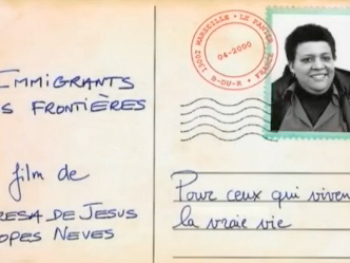 IMMIGRANTS
S FRONTIÈRES
film de
RESA DE JESUS
OPES NEVES
13002 MARSEILLE • LE PANIER
04-2000
B-DU-R • FRANCE
Pour ceux qui viven
la vraie vie